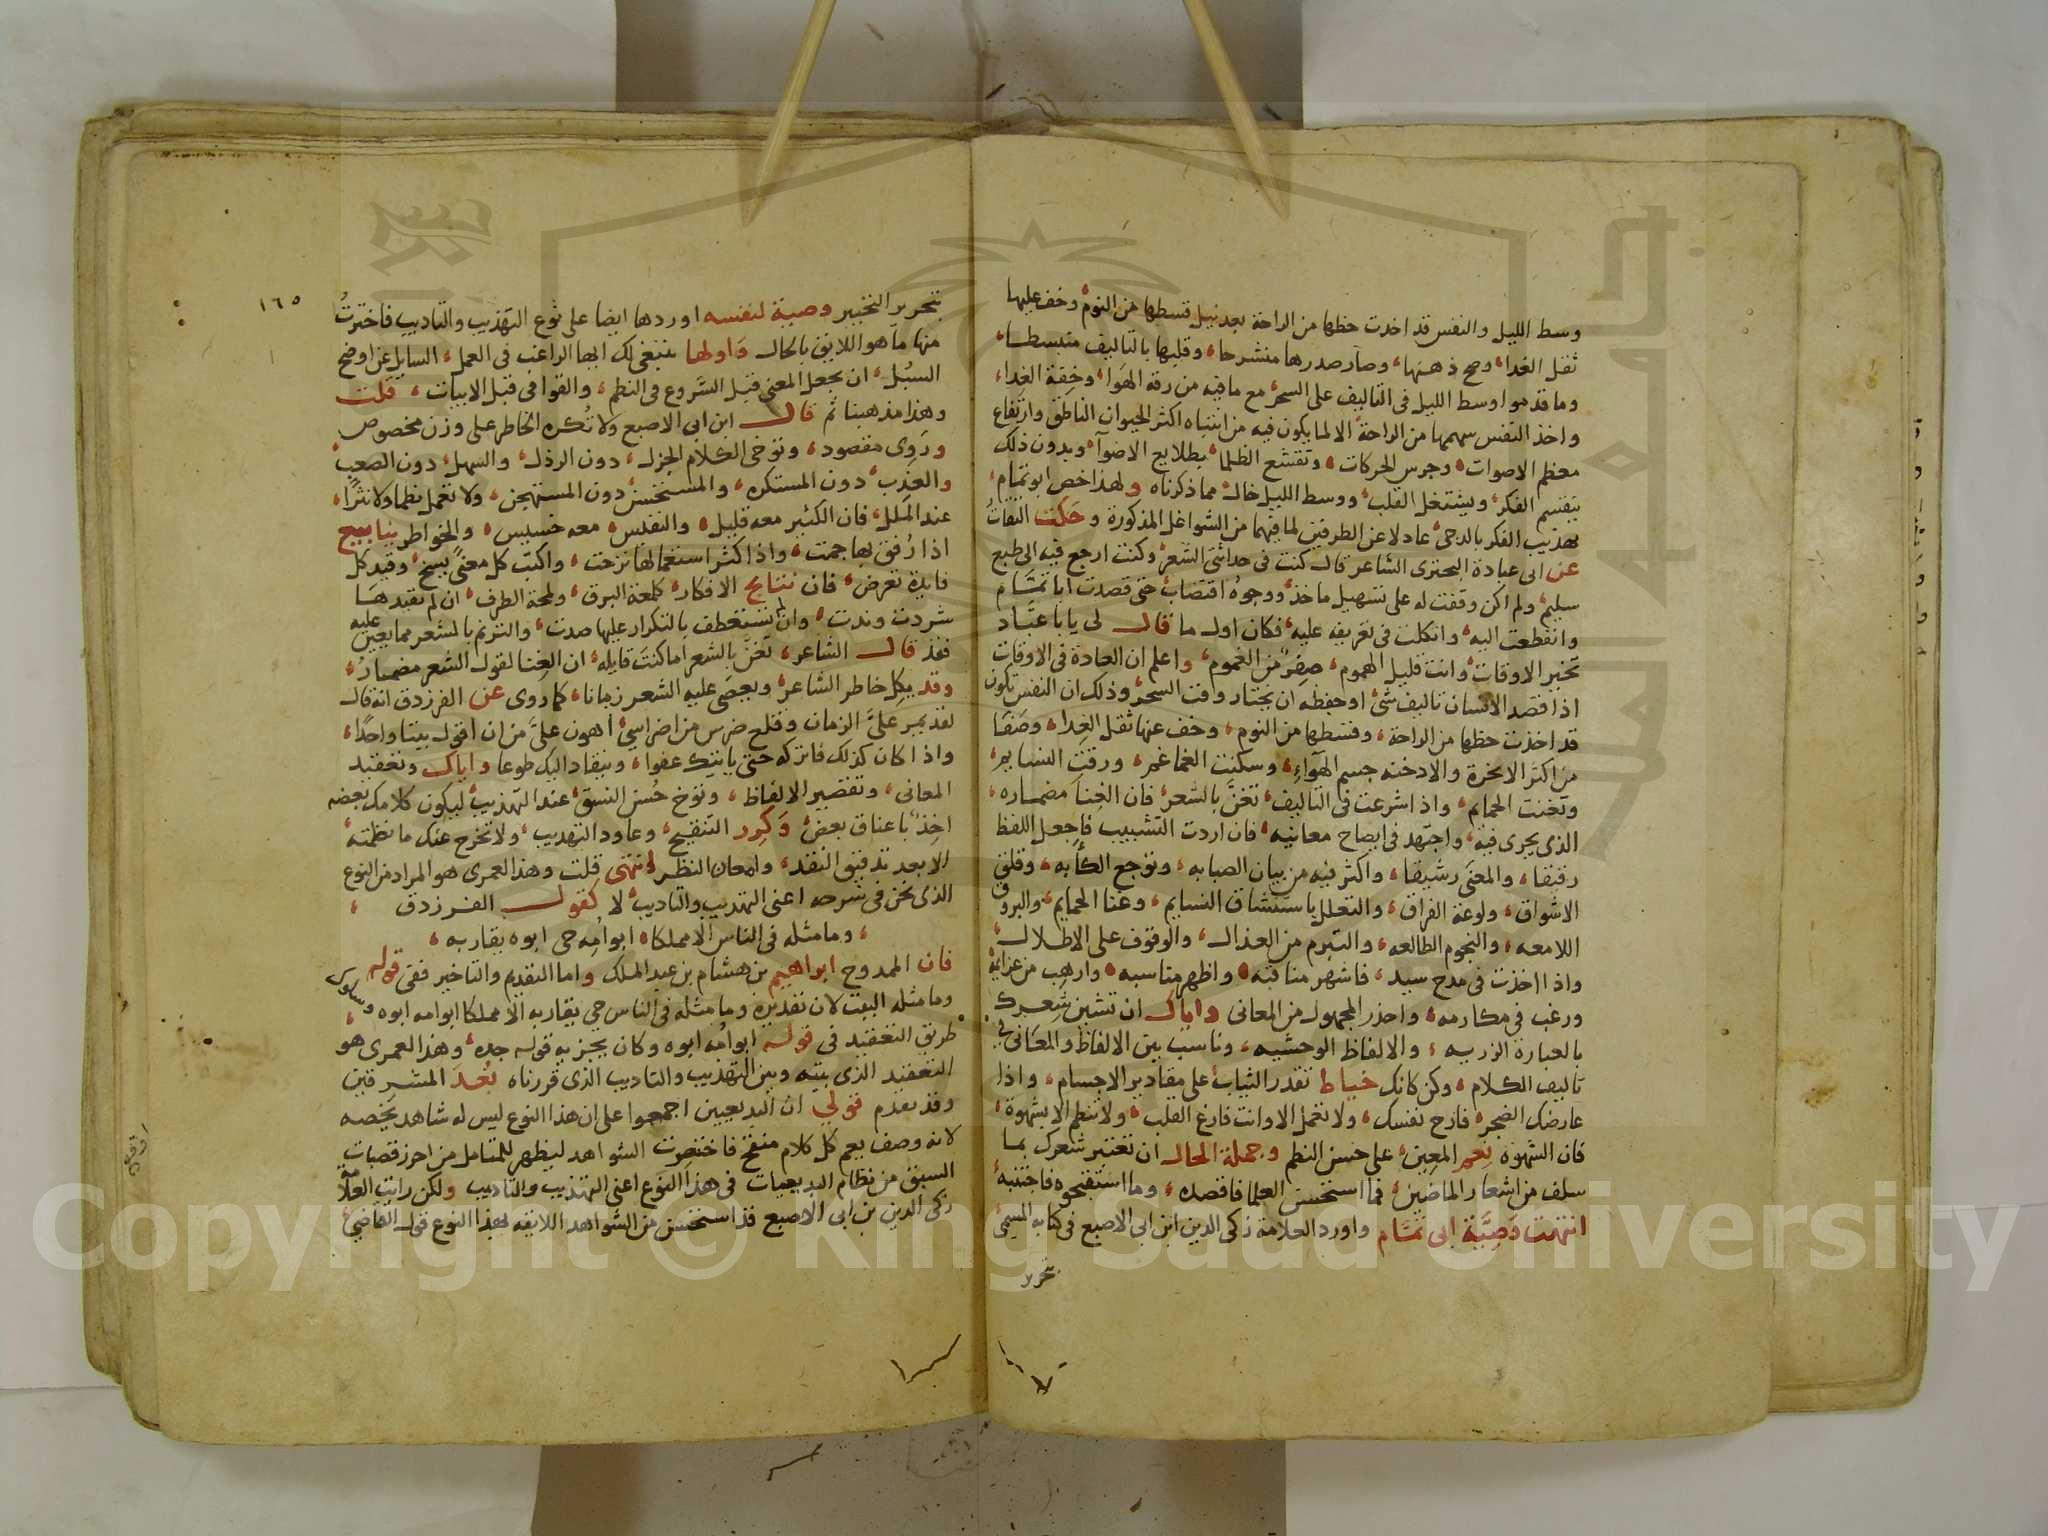 وسط الليل والنفس قد اخدت حظها من الراحة بعد نيل قسطها من النوم وخف عليها
ثقل الغدا وصح ذهنها وصار صدرها منشرحا وقلبها بالتاليف منبسطا
وما قدموا وسط الليل في التاليف على السحر مع ما فيه من رقة الهوا وخفة الغدا
واخذ النفس سهمها من الراحة الا لما يكون فيه من انتباه اكثر الحيوان الناطق وارتفاع
معظم الاصوات وجرس الحركات وتقشع الظلما بطلايع الاضوآ وبدون ذلك
ينقسم الفكر ويشتغل القلب ووسط الليل خال مما ذكرناه ولهذا خص ابو تمام
تهذيب الفكر بالدجى عادلا عن الطرفين لما فيهما من الشواغل المذكورة وحكت الثقات
عن ابي عبادة البحتري الشاعر قال كنت في حداثتي الشعر وكنت ارجع فيه الى طبع
سليم ولم اكن وقفت له على تسهيل ماخذ ووجوه اقتضاب حتى قصدت ابا تمام
وانقطعت اليه واتكلت في تعريفه عليه فكان اول ما قال لي يا با عباد
تخير الاوقات وانت قليل الهموم صفر من الغموم واعلم ان العادة في الاوقات
اذا قصد الانسان تاليف شي او حفظه ان يختار وقت السحر وذلك ان النفس تكون
قد اخذت حظها من الراحة وقسطها من النوم وخف عنها ثقل الغدا وصفا
من اكثر الابخرة والادخنه جسم الهوآء وسكنت الغماغم ورقت النسايم
وتغنت الحمايم واذا شرعت في التاليف تغن بالشعر فان الغنا مضماره
الذي يجري فيه واجتهد في ايضاح معانيه فان اردت التشبيب فاجعل اللفظ
رقيقا والمعنى رشيقا واكثر فيه من بيان الصبابه وتوجع الكآبه وقلق
الاشواق ولوعة الفراق والتعلل باستنشاق النسايم وغنا الحمايم والبروق
اللامعه والنجوم الطالعه والتبرم من العذال والوقوف على الاطلال
واذا اخذت في مدح سيد فاشهر مناقبه واظهر مناسبه وارهب من عزايمه
ورغب في مكارمه واحذر المجهول من المعاني واياك ان تشين شعرك
بالعبارة الزريه والالفاظ الوحشيه وناسب بين الالفاظ والمعاني في
تاليف الكلام وكن كانك خياط تقدر الثياب على مقادير الاجسام واذا
عارضك الضجر فارح نفسك ولا تعمل الا وانت فارغ القلب ولا تنظم الا بشهوة
فان الشهوة نعم المعين على حسن النظم وجملة الحال ان تعتبر شعرك بما
سلف من اشعار الماضين فما استحسن العلما فاقصده وما استقبحوه فاجتنبه
انتهت وصية ابي تمام واورد العلامة زكي الدين ابن ابي الاصبع في كتابه المسمى
بتحرير
١٦٥
بتحرير التخيير وصية لنفسه اوردها ايضا على نوع التهذيب والتاديب فاخترت
منها ما هو اللايق بالحال واولها ينبغي لك ايها الراغب في العمل السايل عن اوضح
السبل ان يحعل المعنى قبل الشروع في النظم والقوافي قبل الابيات قلت
وهذا مذهبنا ثم قال ابن ابي الاصبع ولا تكره الخاطر على وزن مخصوص
وروي مقصود وتوخى الكلام الجزل دون الرذل والسهل دون الصعب
والعذب دون المستكره والمستحسن دون المستهجن ولا تعمل نظما ولا نثرا
عند الملل فان الكثير معه قليل والنفيس معه خسيس والخواطر ينابيع
اذا رفق بها جمت واذا كثر استعمالها نزحت واكتب كل معنى يسنح وقيد كل
فايدة تعرض فان نتايج الافكار كلمعة البرق ولمحة الطرف ان لم تقيدها
شردت وندت وان لم تستعطف بالتكرار عليها صدت والترنم بالشعر مما يعين عليه
فقد قال الشاعر تغن بالشعر اما كنت قايله ان الغنا لقول الشعر مضمار
وقد يكل خاطر الشاعر ويعصى عليه الشعر زمانا كما روي عن الفرزدق انه قال
لقد يمر علي الزمان وقلع ضرس من اضراسي اهون علي من ان اقول بيتا واحدا
واذا كان كذلك فاتركه حتى ياتيك عفوا وينقاد اليك طوعا واياك وتعقيد
المعاني وتقصير الالفاظ وتوخ حسن النسق عند التهذيب ليكون كلامك بعضه
اخذ باعناق بعض وكرر التنقيح وعاود التهذيب ولا تخرج عنك ما نظمته
الا بعد تدقيق النقد وامعان النظر انتهى قلت وهذا لعمري هو المراد من النوع
الذي نحن في شرحه اعني التهذيب والتاديب لا كقول الفرزدق
وما مثله في الناس الا مملكا ابو امه حي ابوه يقاربه
فان الممدوح ابراهيم بن هشام بن عبد الملك واما التقديم والتاخير ففي قوله
وما مثله البيت لان تقديره وما مثله في الناس حي يقاربه الا مملكا ابو امه ابوه وسلوك
طريق التعقيد في قوله ابو امه ابوه وكان يجزيه قوله جده وهذا لعمري هو
التعقيد الذي بينه وبين التهذيب والتاديب الذي قررناه بعد المشرقين
وقد تقدم قولي ان البديعيين اجمعوا على ان هذا النوع ليس له شاهد يخصه
لانه وصف يعم كل كلام منقح فاختصرت الشواهد ليظهر للمتامل من احرز قصبات
السبق من نظام البديعيات في هذا النوع اعني التهذيب والتاديب ولكن رايت العلامة
زكي الدين بن ابي الاصبع قد استحسن من الشواهد اللايقه بهذا النوع قول القاضي
Copyright © King Saud University